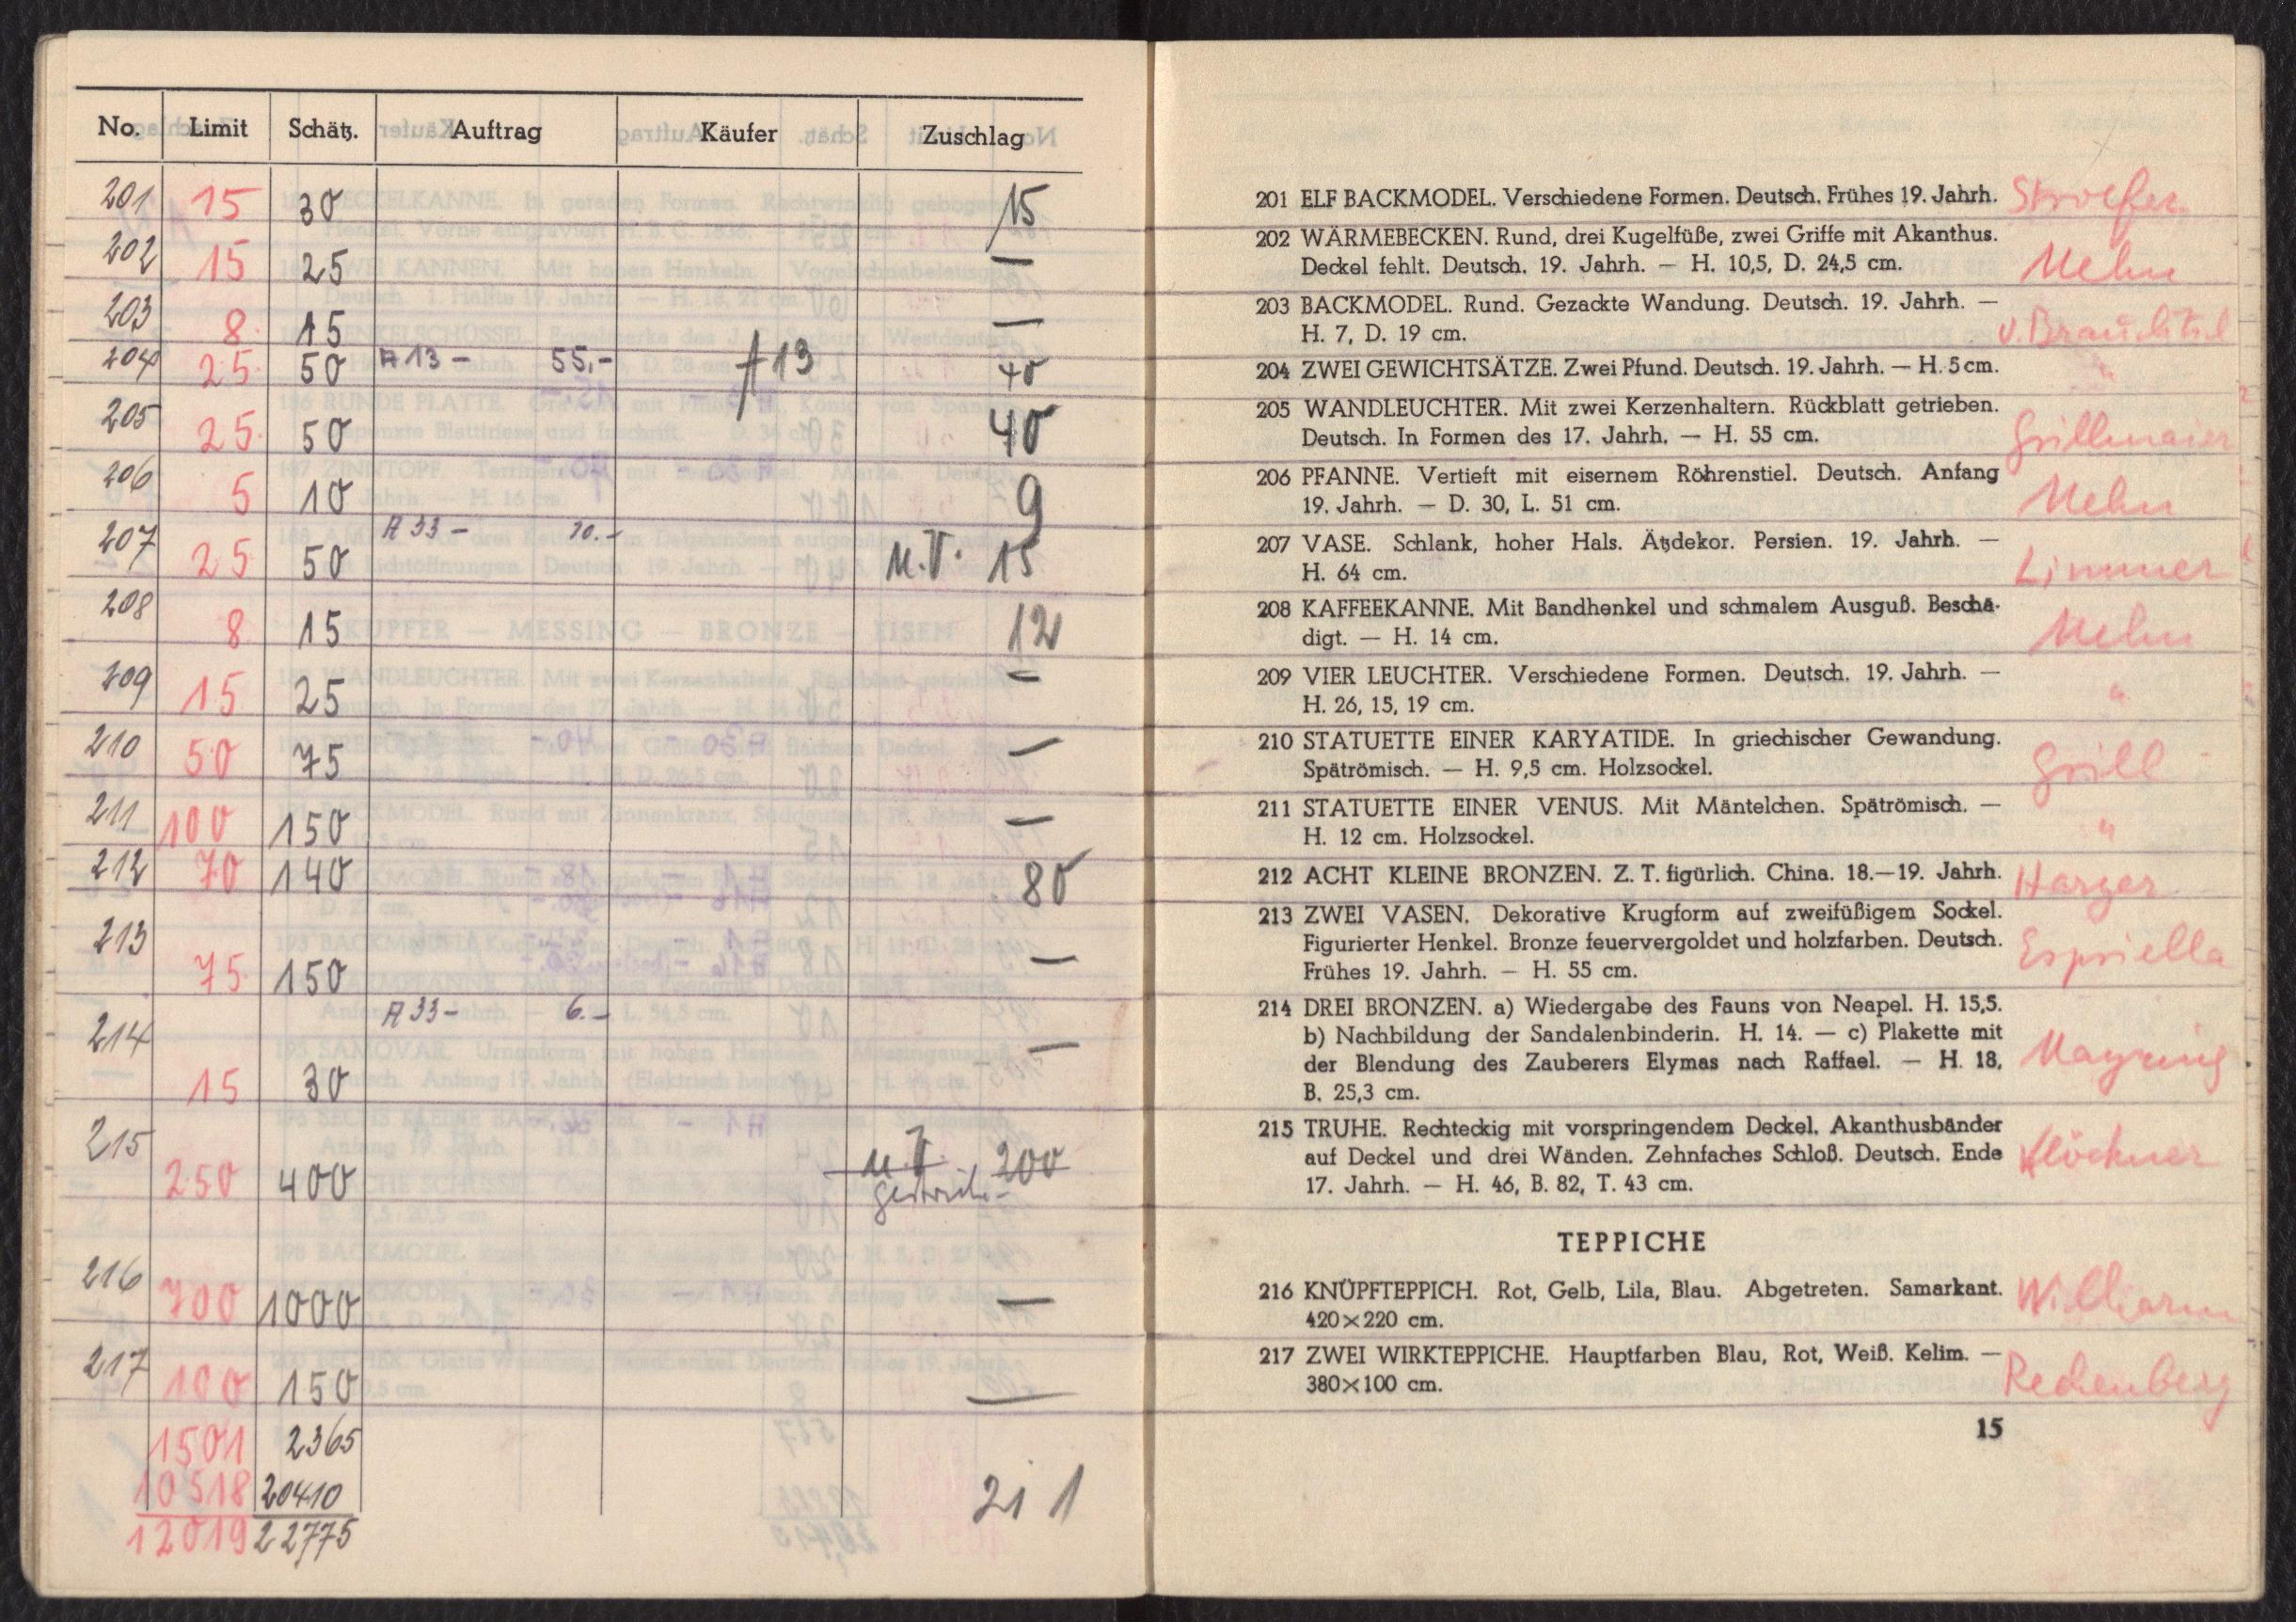 No. Limit Schätz. Auftrag Käufer Zuschlag
201 15 30 15
202 15 25 —
203 8 15 —
204 25 50 A 13 — 55,- A 13 40
205 25 50 40
206 5 10 9
207 25 50 A 33 — 20.- U.V. 15
208 8 15 12
209 15 25 —
210 50 75 —
211 100 150 —
212 70 140 80
213 75 150 —
214 15 30 A 33 — 6.- —
215 250 400 U.V. 200
216 700 1000 —
217 100 150 —
1501 2365
10518 20410
12019 22775
211
201 ELF BACKMODEL. Verschiedene Formen. Deutsch. Frühes 19. Jahrh.
202 WÄRMEBECKEN. Rund, drei Kugelfüße, zwei Griffe mit Akanthus.
Deckel fehlt. Deutsch. 19. Jahrh. — H. 10,5, D. 24,5 cm. Mehn
203 BACKMODEL. Rund. Gezackte Wandung. Deutsch. 19. Jahrh. —
H. 7, D. 19 cm. v. Brauchitsch
204 ZWEI GEWICHTSÄTZE. Zwei Pfund. Deutsch. 19. Jahrh. — H. 5 cm. "
205 WANDLEUCHTER. Mit zwei Kerzenhaltern. Rückblatt getrieben.
Deutsch. In Formen des 17. Jahrh. — H. 55 cm. Grillmaier
206 PFANNE. Vertieft mit eisernem Röhrenstiel. Deutsch. Anfang
19. Jahrh. — D. 30, L. 51 cm. Mehn
207 VASE. Schlank, hoher Hals. Ätzdekor. Persien. 19. Jahrh. —
H. 64 cm. Limmer
208 KAFFEEKANNE. Mit Bandhenkel und schmalem Ausguß. Beschä-
digt. — H. 14 cm. Mehn
209 VIER LEUCHTER. Verschiedene Formen. Deutsch. 19. Jahrh. —
H. 26, 15, 19 cm. "
210 STATUETTE EINER KARYATIDE. In griechischer Gewandung.
Spätrömisch. — H. 9,5 cm. Holzsockel. Grill
211 STATUETTE EINER VENUS. Mit Mäntelchen. Spätrömisch. —
H. 12 cm. Holzsockel. "
212 ACHT KLEINE BRONZEN. Z. T. figürlich. China. 18.—19. Jahrh. Harger
213 ZWEI VASEN. Dekorative Krugform auf zweifüßigem Sockel.
Figurierter Henkel. Bronze feuervergoldet und holzfarben. Deutsch. Espriella
Frühes 19. Jahrh. — H. 55 cm.
214 DREI BRONZEN. a) Wiedergabe des Fauns von Neapel. H. 15,5.
b) Nachbildung der Sandalenbinderin. H. 14. — c) Plakette mit Mayring
der Blendung des Zauberers Elymas nach Raffael. — H. 18,
B. 25,3 cm.
215 TRUHE. Rechteckig mit vorspringendem Deckel. Akanthusbänder
auf Deckel und drei Wänden. Zehnfaches Schloß. Deutsch. Ende Klöckner
17. Jahrh. — H. 46, B. 82, T. 43 cm.
TEPPICHE
216 KNÜPFTEPPICH. Rot, Gelb, Lila, Blau. Abgetreten. Samarkant.
420×220 cm.
217 ZWEI WIRKTEPPICHE. Hauptfarben Blau, Rot, Weiß. Kelim. —
380×100 cm. Rechenberg
15